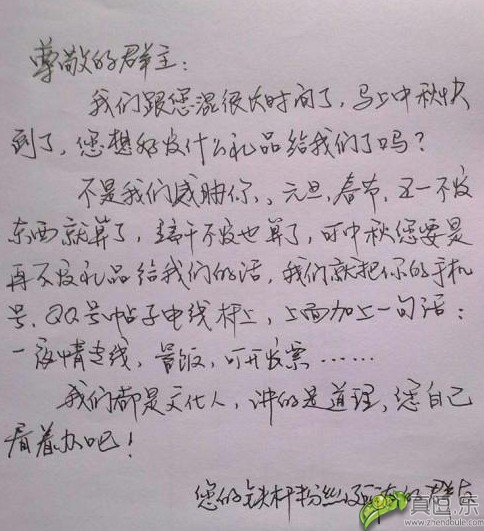 尊敬的群主：
我们跟您混很久时间了，马上中秋快
到了，您想好发什么礼品给我们了吗？
不是我们威胁你、元旦、春节、五一不发
东西就算了，端午不发也算了，可中秋您要是
再不发礼品给我们的话，我们就把你的手机
号、QQ号帖子电线杆上，上面加上一句话：
一夜情专线，量版，可开发票……
我们都是文化人，讲的是道理，您自己
看着办吧！
您的铁杆粉丝
的群友
真逗.乐
www.zhendoule.com